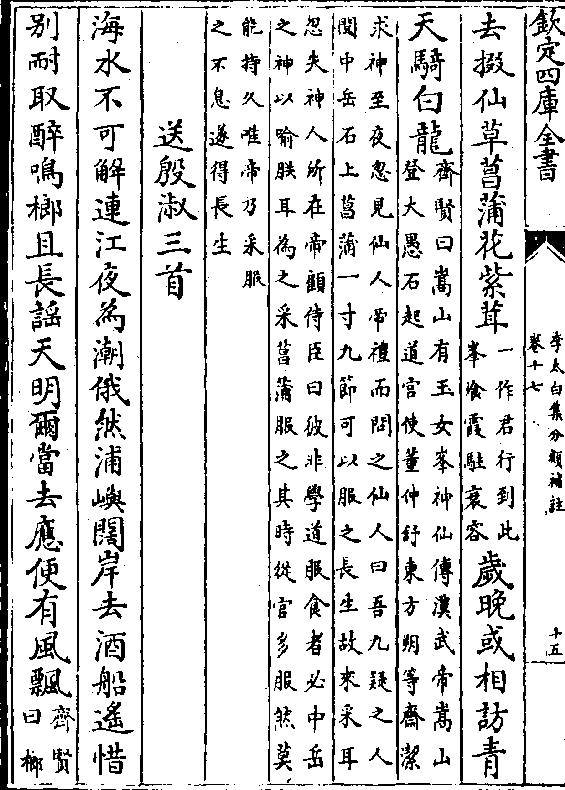 欽定四庫全書
李太白集分類補註
卷十七
十五
去掇仙草菖蒲花紫茸
一作君行到此
峯飡霞駐衰容
歲晚或相訪青
天騎白龍
齊賢曰嵩山有玉女峯神仙傳漢武帝嵩山
登大愚石起道宫使董仲舒東方明等齋潔
求神至夜忽見仙人帝禮而問之仙人曰吾九疑之人
聞中岳石上菖蒲一寸九節可以服之長生故來采耳
忽失神人所在帝顧侍臣曰彼非學道服食者必中岳
之神以喻朕耳為之采菖蒲服之其時從官多服然莫
能持久唯帝乃采服
之不息遂得長生
送殷淑三首
海水不可解連江夜為潮俄然浦嶼闊岸去酒船遙惜
別耐取醉鳴榔且長謡天明爾當去應便有風飄
齊賢
曰榔